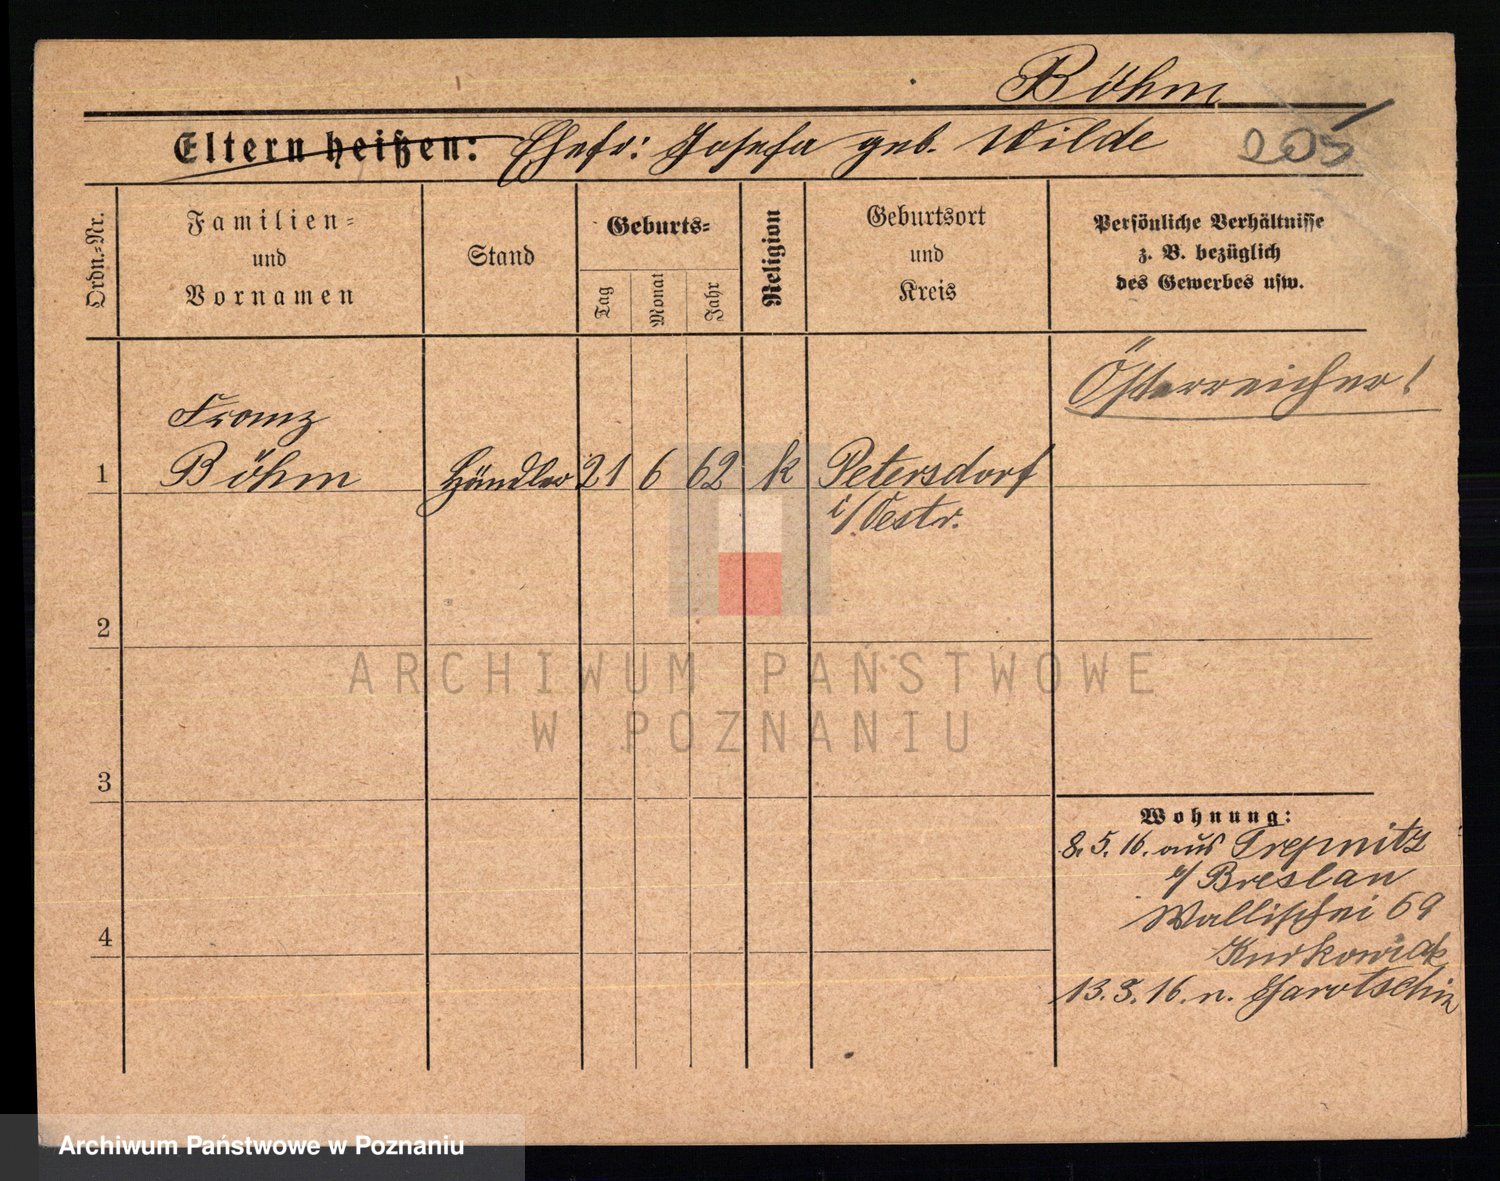 Böhm
Eltern heißen: Ehefr: Josefa geb. Wilde
205
Ordn.-Nr.
Familien-
und
Vornamen
Stand
Geburts-
Tag
Monat
Jahr
Religion
Geburtsort
und
Kreis
Persönliche Verhältnisse
z. B. bezüglich
des Gewerbes usw.
Österreicher!
Franz
1 Böhm Händler 21 6 62 k Petersdorf
i/Oestr.
2
ARCHIWUM PAŃSTWOWE
W POZNANIU
3
Wohnung:
8. 5. 16. aus Trepnitz
b/ Breslau
Wallischei 69
4
Kurkowiak
13. 5. 16. n. Jarotschin
Archiwum Państwowe w Poznaniu